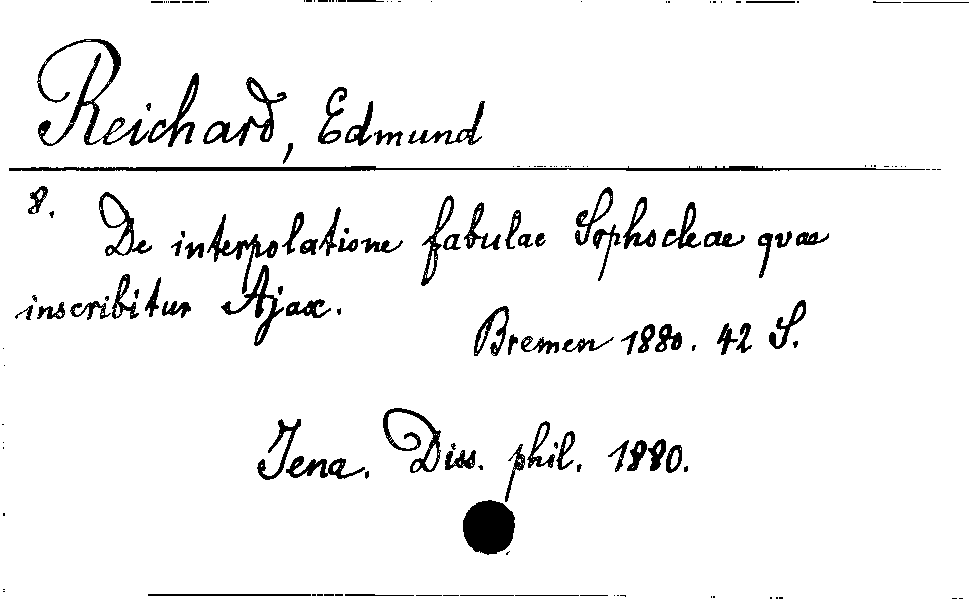 Reichard, Edmund
8.
De interpolatione fabulae Sophocleae quae
inscribitur Ajax.
Bremen 1880. 42 S.
Jena. Diss. phil. 1880.